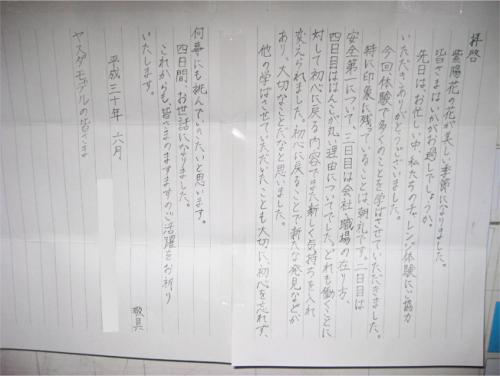 拝啓
紫陽花の花が美しい季節になりました。
皆さまはいかがお過しでしょうか。
先日は、お忙しい中、私たちのチャレンジ体験にご協力
いただきありがとうございました。
今回体験で多くのことを学ばさせていただきました。
特に印象に残っていることは、朝礼です。二日目は
安全第一について、三日目は会社・職場の在り方、
四日目ははんこが丸い理由についてでした。どれも働くことに
対して初心に戻る内容でまた新しく気持ちを入れ
変えられました。初心に戻ることで新たな発見などが
あり、大切なことだなと思いました。
他の学ばさせていただいたことも大切に、初心を忘れず、
何事にも挑んでいきたいと思います。
四日間、お世話になりました。
これからも、皆さまのますますのご活躍をお祈り
いたします。
敬具
平成三十年 六月
ヤスダモデルの皆さま